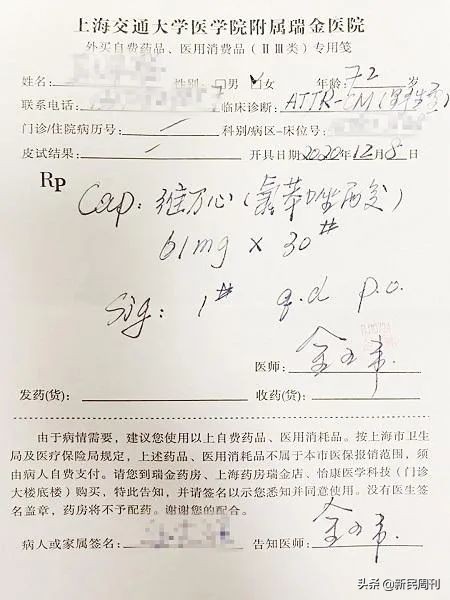 上海交通大学医学院附属瑞金医院
外买自费药品、医用消费品(ⅡⅢ类)专用笺
姓名: 性别: □男 ☑女 年龄: 72 岁
联系电话: 临床诊断: ATTR-CM(野生型)
门诊/住院病历号: / 科别/病区-床位号:
皮试结果: / 开具日期 2020年12月8日
Rp
Cap: 维万心(氯苯唑酸)
61mg × 30#
Sig: 1# q.d p.o.
医师:
发药(货): 收药(货):
由于病情需要,建议您使用以上自费药品、医用消耗品。按上海市卫生
局及医疗保险局规定,上述药品、医用消耗品不属于本市医保报销范围,须
由病人自费支付。请您到瑞金药房、上海药房瑞金店、怡康医学科技(门诊
大楼底楼)购买,特此告知,并请签名以示您悉知并同意使用。没有医生签
名盖章,药房将不予配药。谢谢您的配合。
病人或家属签名: 告知医师:
头条 @新民周刊